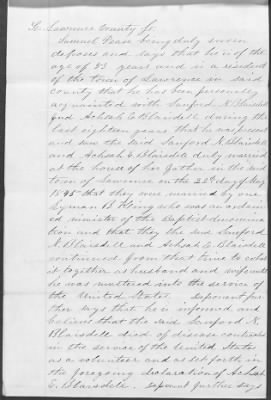 St. Lawrence County ss
Samuel Pease being duly sworn
deposes and says that he is of the
age of 53 years and is a resident
of the town of Lawrence in said
county that he has been personally
acquainted with Sanford N. Blaisdell
and Achsah E Blaisdell during the
last eighteen years that he was present
and saw the said Sanford N. Blaisdell
and Achsah E Blaisdell duly married
at the house of her father in the said
town of Lawrence on the 22d day of May
1845 that they were married by one
Lyman B. King who was an ordained
minister of the Baptist denomina
tion and that they the said Sanford
N. Blaisdell and Achsah E. Blaisdell
continued from that time to cohab
it together as husband and wife until
he was mustered into the service of
the United States. Deponent fur
ther says that he is informed and
believes that the said Sanford N.
Blaisdell died of disease contracted
in the service of the United States
as a volunteer and as set forth in
the foregoing declaration of Achsah
E. Blaisdell. Deponent further says